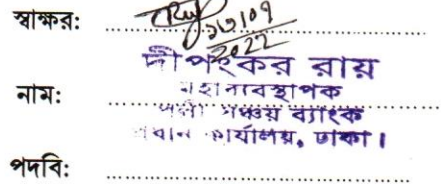 স্বাক্ষর:
১৩/০৭
2022
দীপংকর রায়
নাম: মহাব্যবস্থাপক
পল্লী সঞ্চয় ব্যাংক
প্রধান কার্যালয়, ঢাকা।
পদবি: